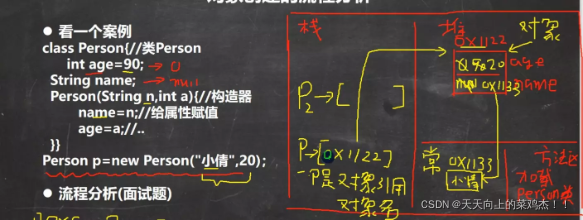 ● 看一个案例
class Person{//类Person
int age=90; → 0
String name; → null
Person(String n,int a){//构造器
name=n;//给属性赋值
age=a;//..
}}
Person p=new Person("小倩",20);
● 流程分析(面试题)
栈
P2→[ ]
P→[0X1122]
P是对象引用
对象名
堆
对象
0X1122
20
age
null 0X1133
name
常
0X1133
小倩
方法区
加载
Person类
CSDN @天天向上的菜鸡杰！！